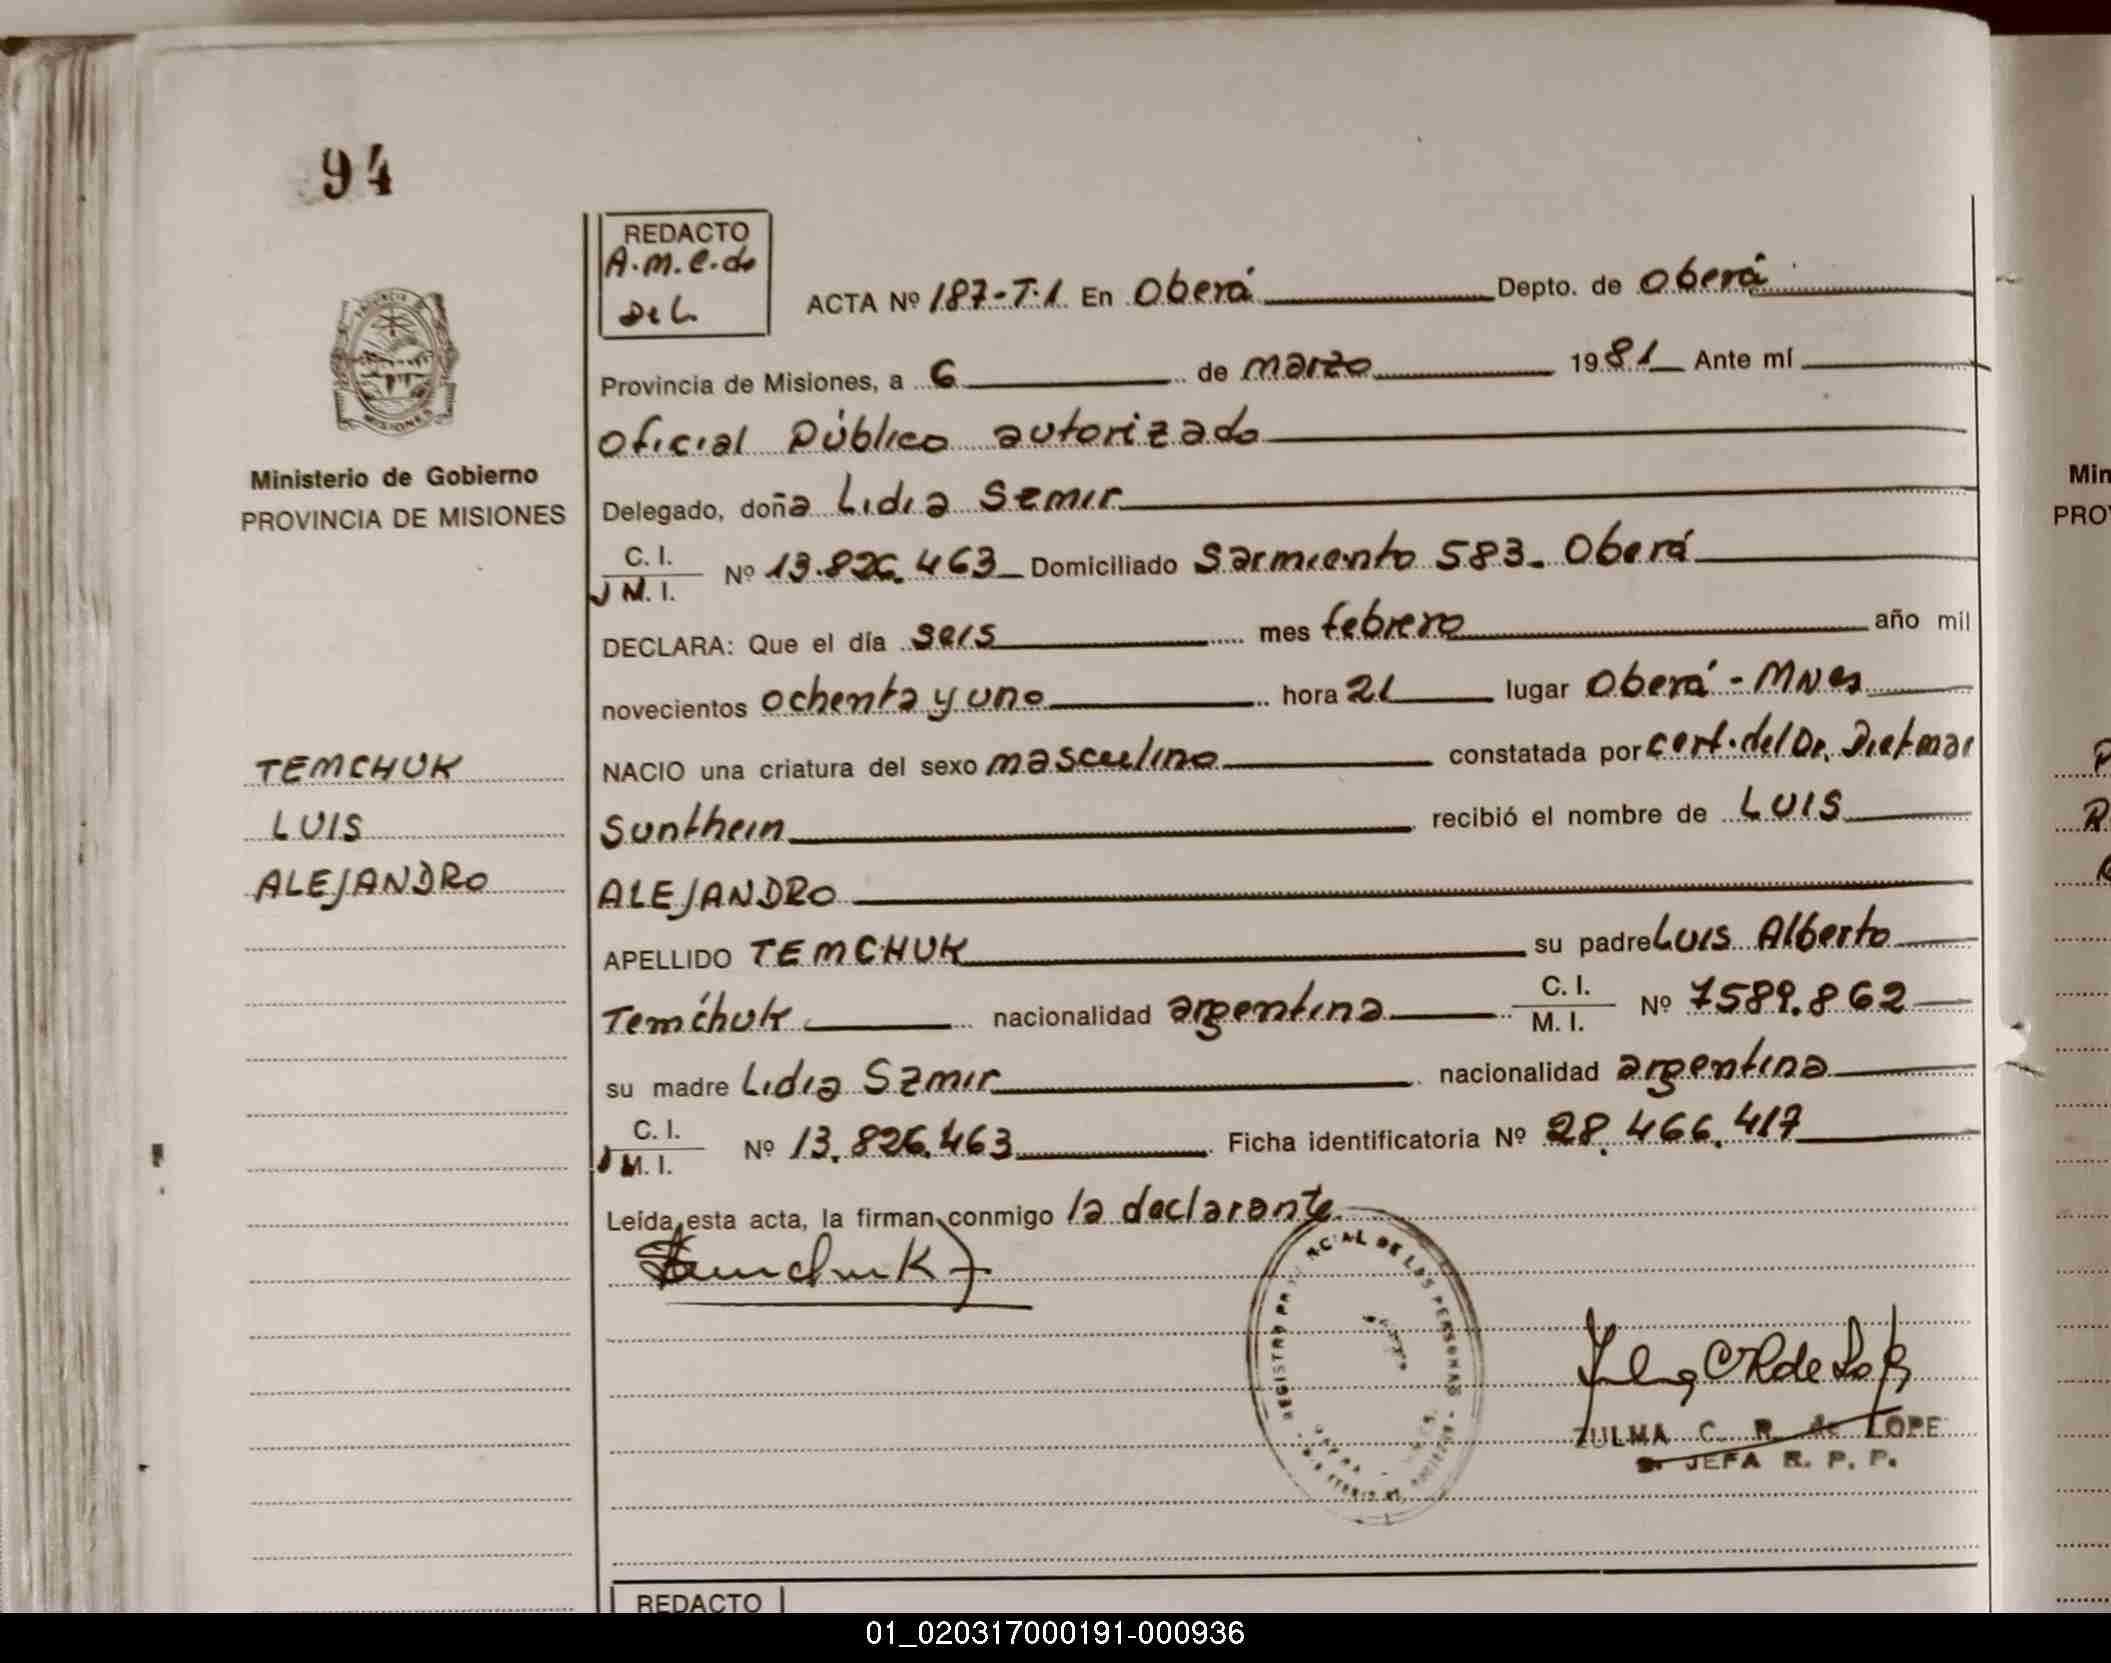 94
REDACTO
A.M.C.de
De L.
ACTA Nº 187-T.1 En Oberá Depto. de Oberá
Provincia de Misiones, a 6 de marzo 1981 Ante mí
Oficial Público autorizado
Delegado, doña Lidia Szmir
C. I.
M. I.
Nº 13.826.463 Domiciliado Sarmiento 583. Oberá
DECLARA: Que el día seis mes febrero año mil
novecientos ochenta y uno hora 21 lugar Oberá - Mnes
NACIO una criatura del sexo masculino constatada por cert. del Dr. Dietmar
Sunthein recibió el nombre de LUIS
ALEJANDRO
APELLIDO TEMCHUK su padre Luis Alberto
Temchuk nacionalidad argentina C. I.
M. I.
Nº 7589.862
su madre Lidia Szmir nacionalidad argentina
C. I.
M. I.
Nº 13.826.463 Ficha identificatoria Nº 28.466.417
Leída esta acta, la firman conmigo la declarante
REGISTRO PROVINCIAL DE LAS PERSONAS
ZULMA C. R. de LOPE
JEFA R. P. P.
REDACTO
PROVINCIA
MISIONES
Ministerio de Gobierno
PROVINCIA DE MISIONES
TEMCHUK
LUIS
ALEJANDRO
Min
PROV
01_020317000191-000936